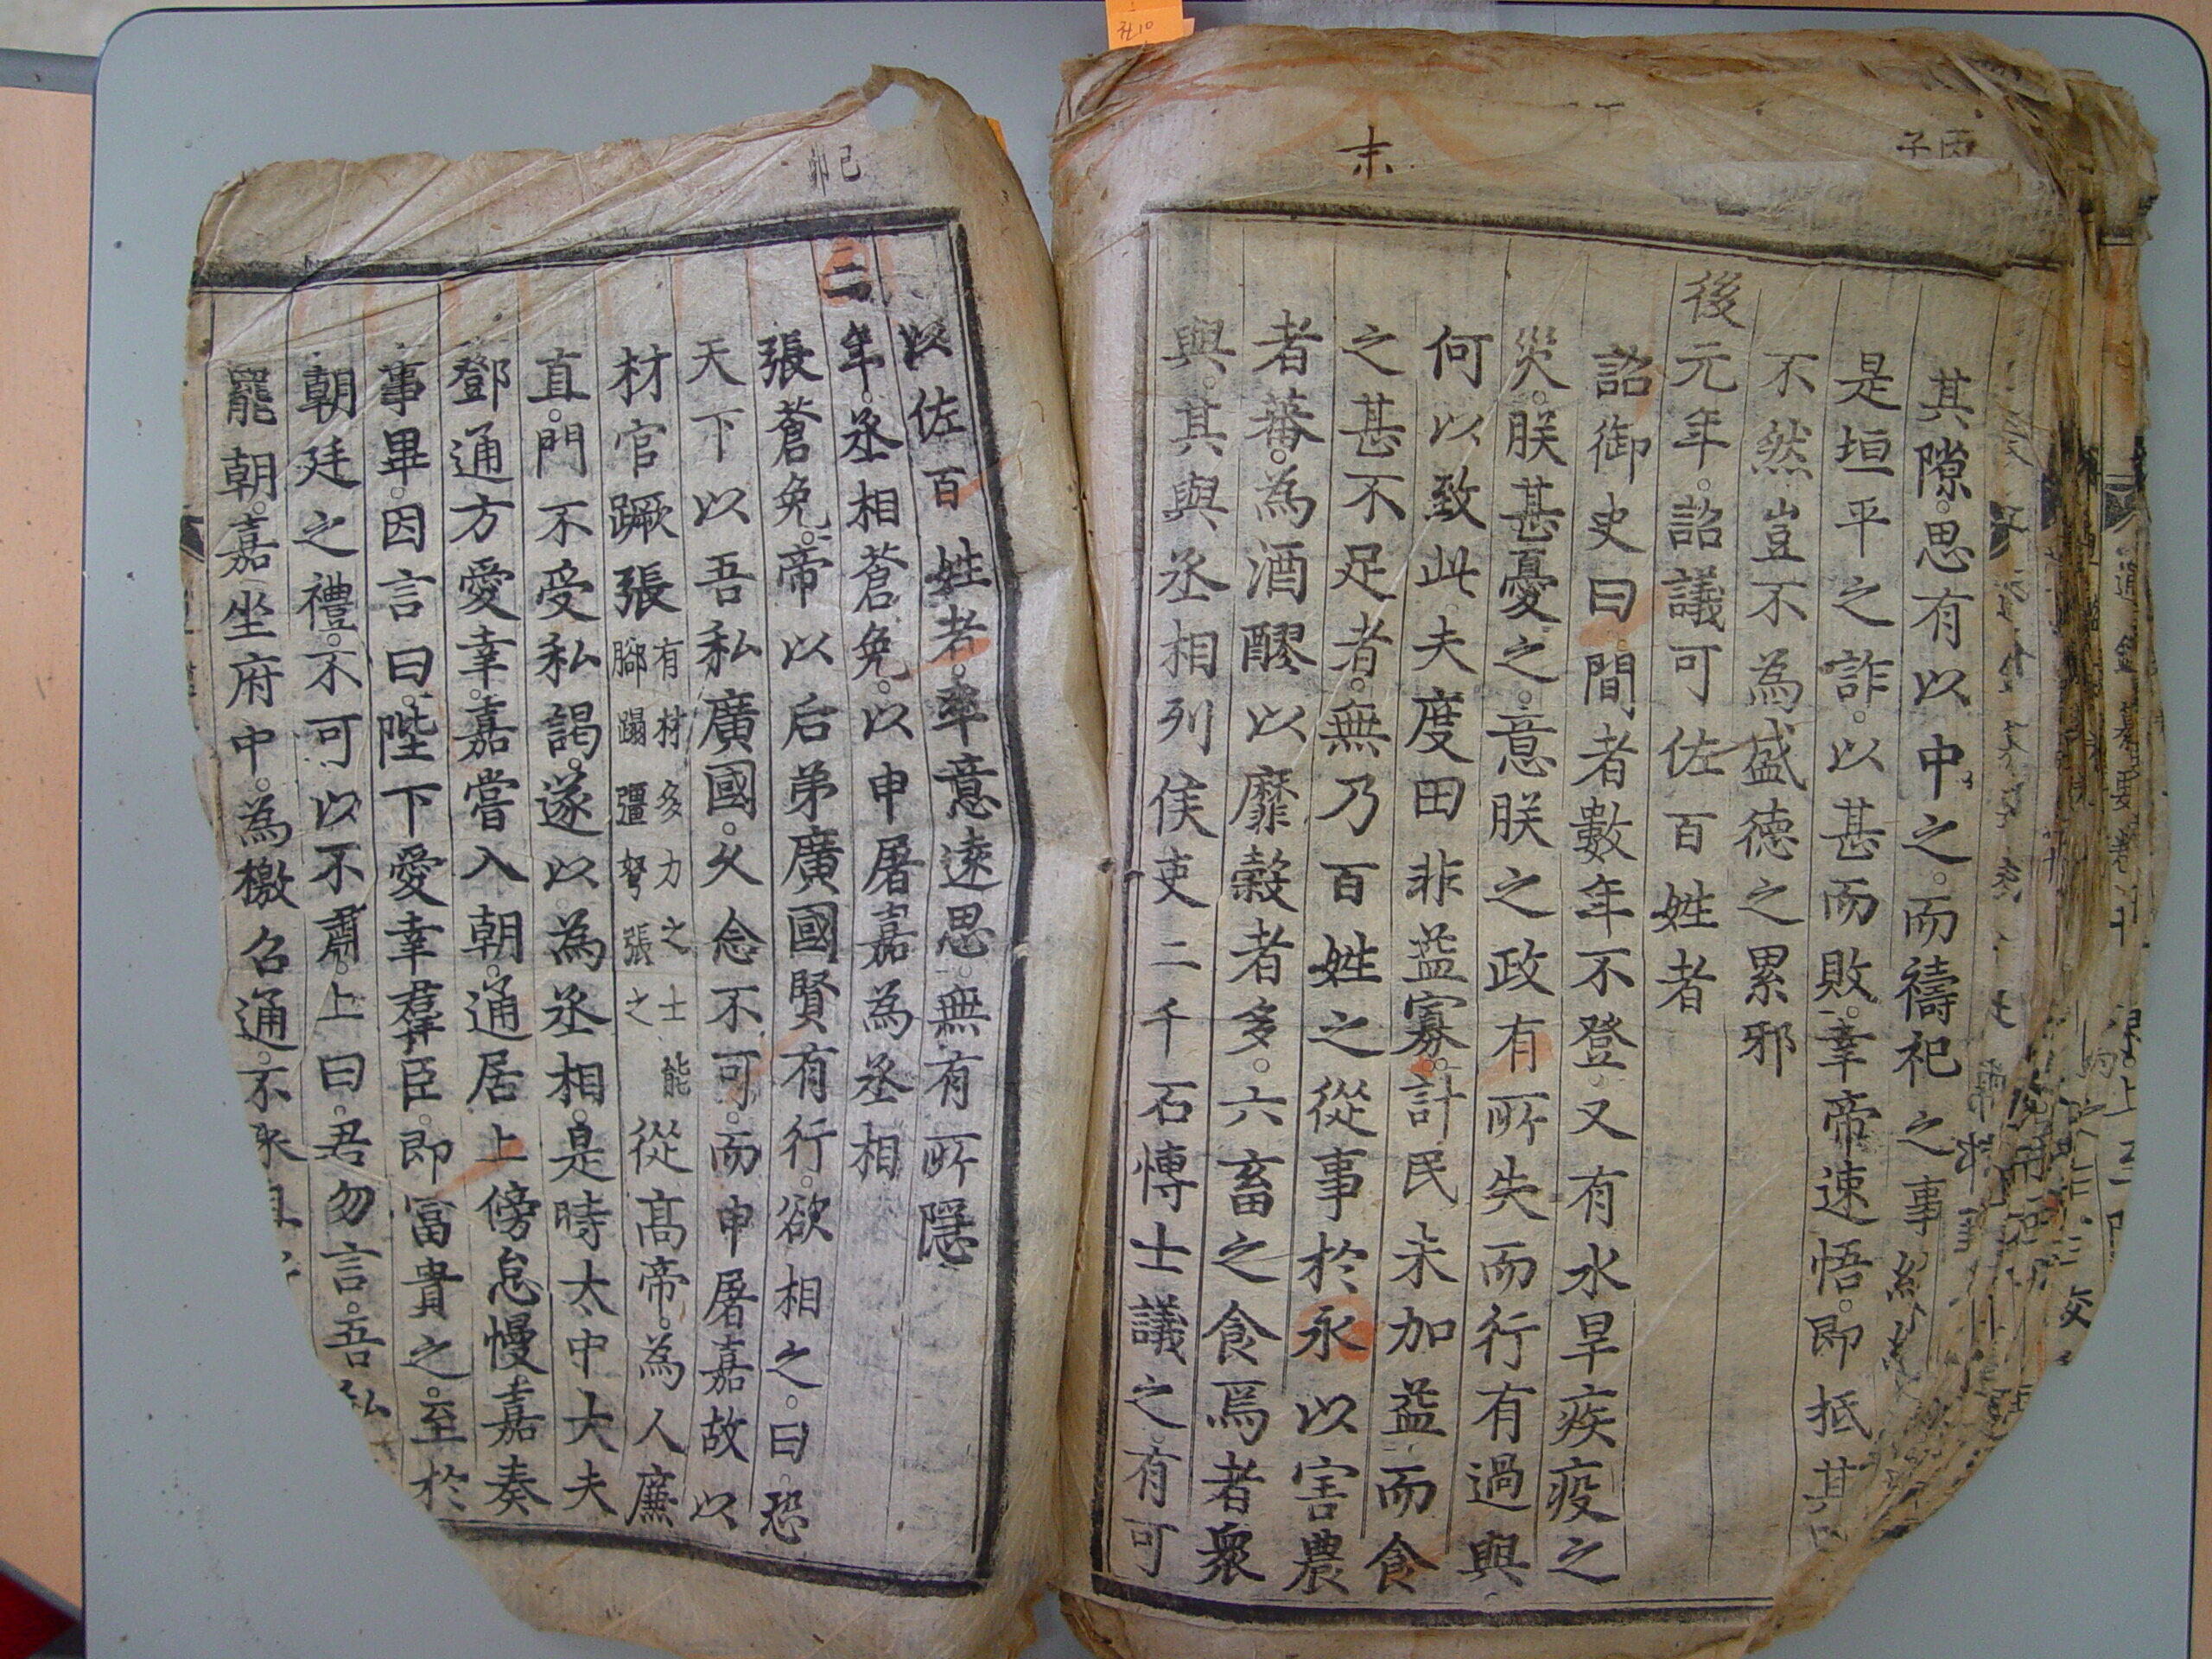 丙子
末
其隙思有以中之而禱祀之事紛
是垣平之詐以甚而敗幸帝速悟即抵其
不然豈不為盛德之累邪
後元年詔議可佐百姓者
詔御史曰間者數年不登又有水旱疾疫之
災朕甚憂之意朕之政有所失而行有過與
何以致此夫度田非益寡計民未加益而食
之甚不足者無乃百姓之從事於永以害農
者蕃為酒醪以靡穀者多六畜之食焉者衆
與其與丞相列侯吏二千石博士議之有可
己卯
以佐百姓者率意遠思無有所隱
二年丞相蒼免以申屠嘉為丞相
張蒼免帝以后弟廣國賢有行欲相之曰恐
天下以吾私廣國久念不可而申屠嘉故以
材官蹶張有材多力之士能脚蹋彊弩張之從高帝為人廉
直門不受私謁遂以為丞相是時太中大夫
鄧通方愛幸嘉嘗入朝通居上傍怠慢嘉奏
事畢因言曰陛下愛幸羣臣即冨貴之至於
朝廷之禮不可以不肅上曰君勿言吾私
罷朝嘉坐府中為檄召通不來